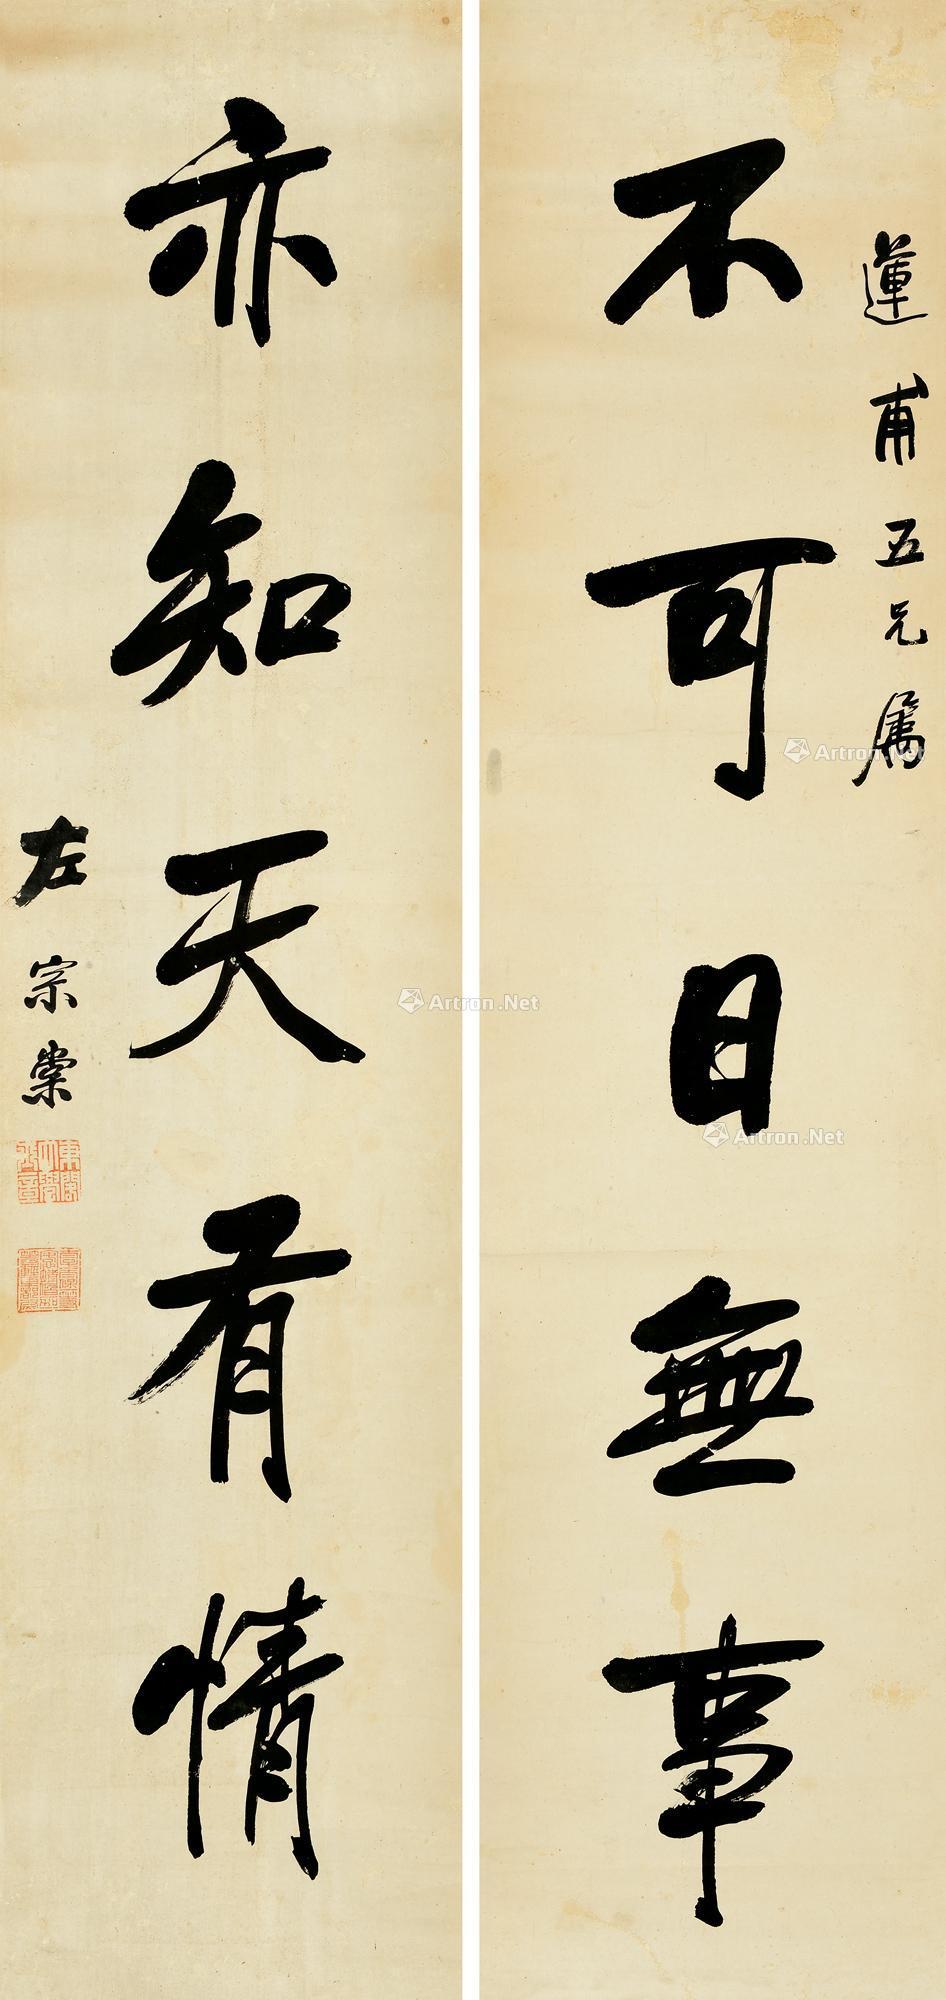 蓮甫五兄屬
不可日無事
亦知天有情
左宗棠
東閣大學士章
Artron.Net
Artron.Net
Artron.Net